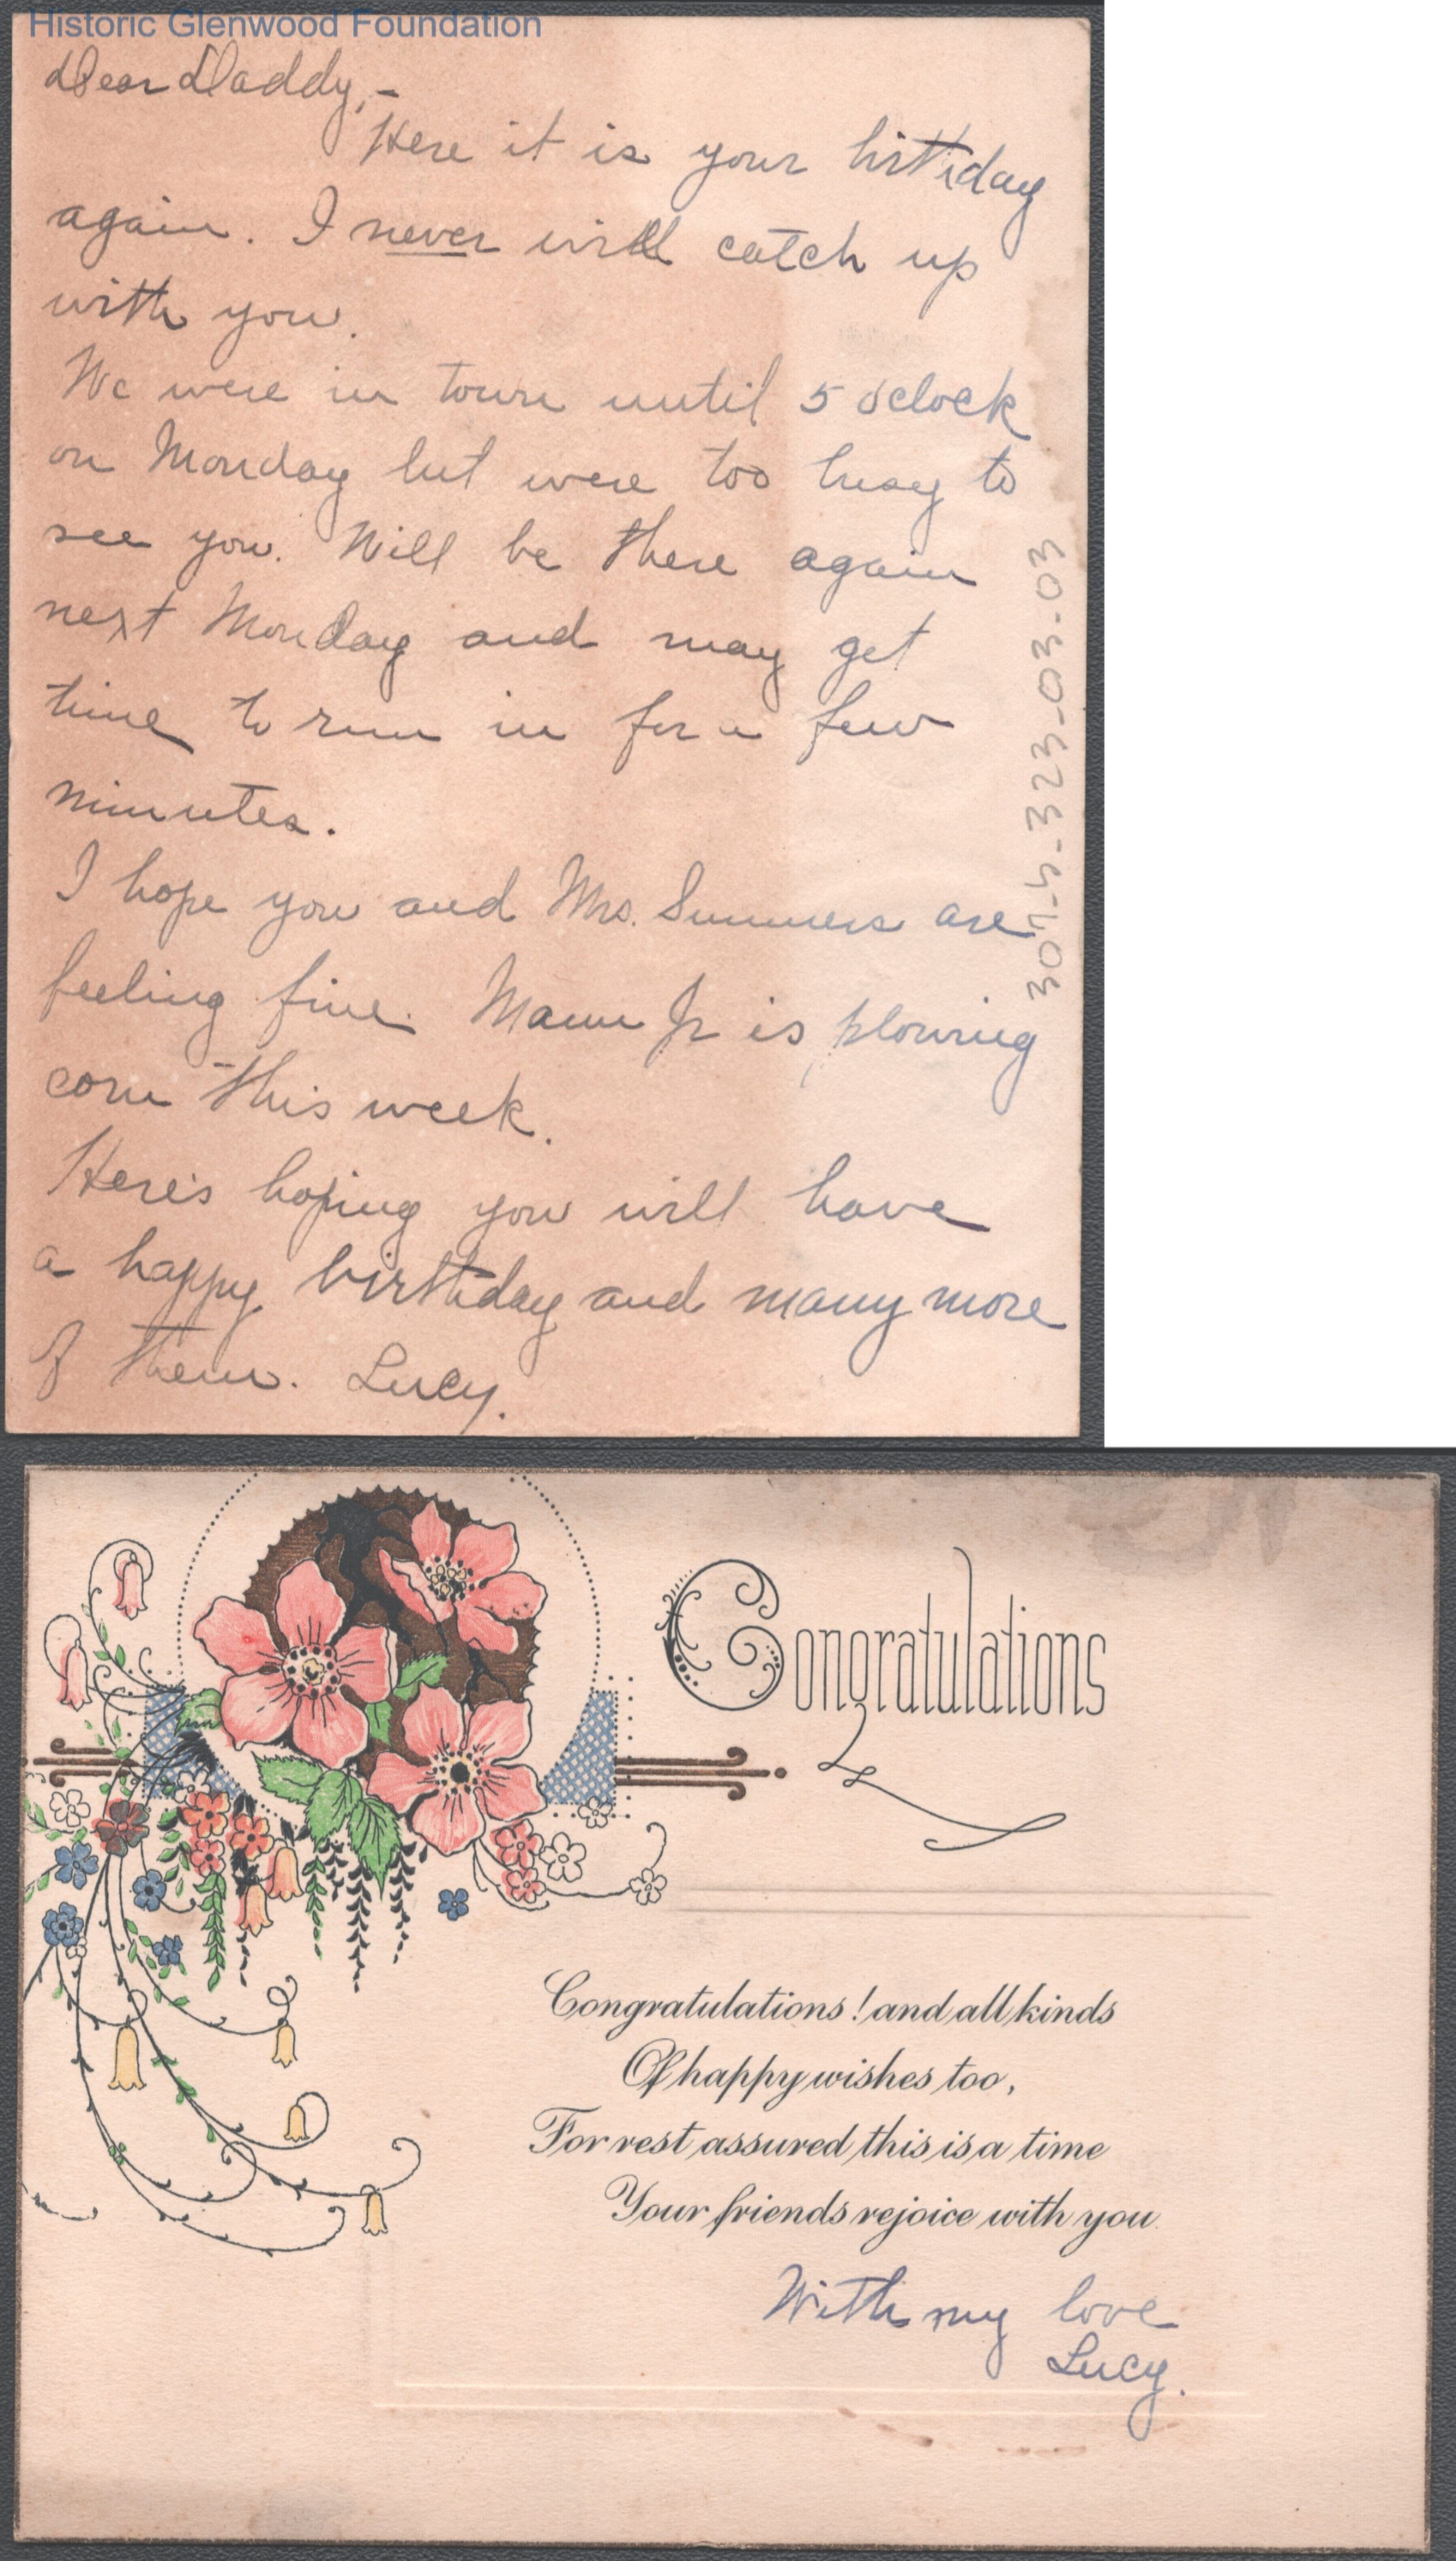 Historic Glenwood Foundation
Dear Daddy,-
Here it is your birthday
again. I never will catch up
with you.
We were in town until 5 o'clock
on Monday but were too busy to
see you. Will be there again
next Monday and may get
time to run in for a few
minutes.
I hope you and Mrs. Summers are
feeling fine. Mann Jr is plowing
corn this week.
Here's hoping you will have
a happy birthday and many more
of them. Lucy.
301-5-323-03-03
Congratulations
Congratulations! and all kinds
Of happy wishes too,
For rest assured this is a time
Your friends rejoice with you.
With my love
Lucy.